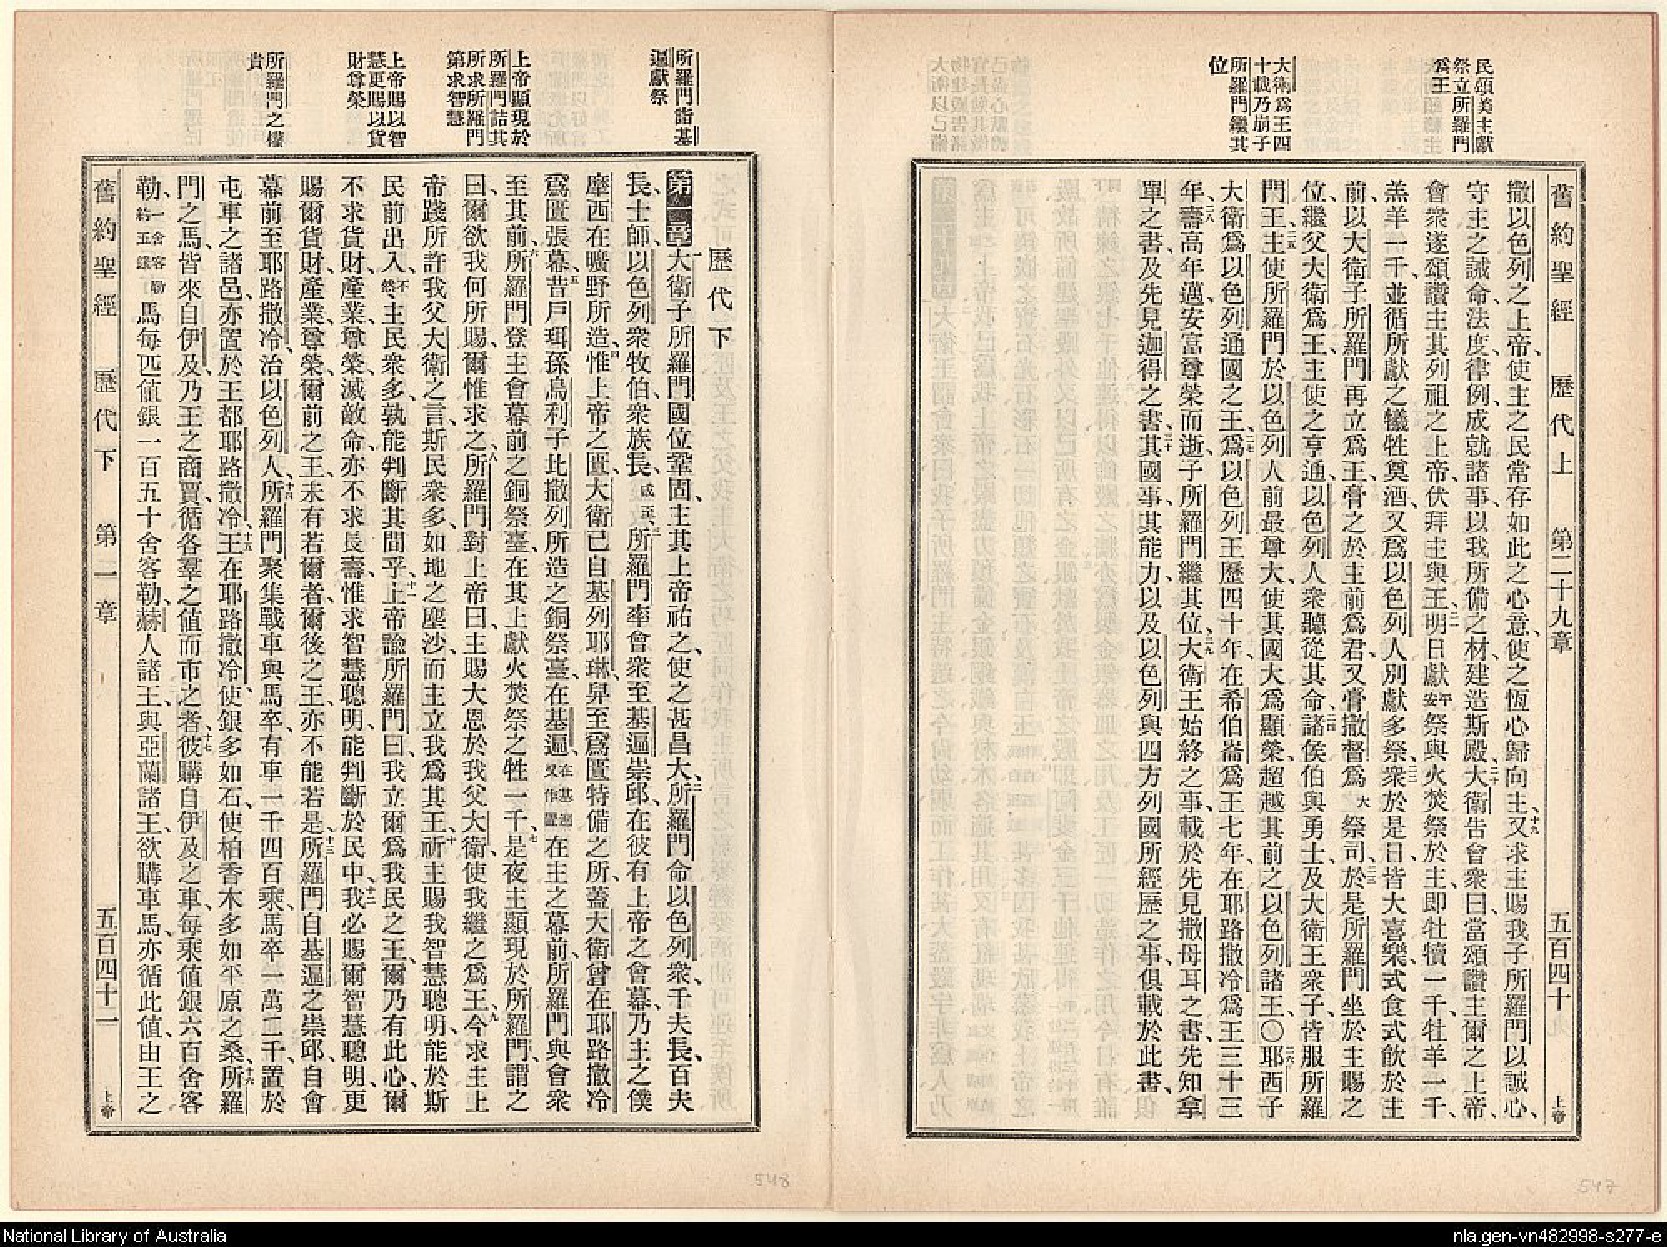 舊約聖經　歷代上　第二十九章　五百四十　上帝
民頌美主獻
祭立所羅門
爲王
大衛爲王四
十載乃崩子
所羅門繼其
位
撒以色列之上帝、使主之民常存如此之心意、使之恆心歸向主、十九又求主賜我子所羅門以誠心、
守主之誡命、法度、律例、成就諸事、以我所備之材建造斯殿、二十大衛告會衆曰、當頌讚主爾之上帝、
會衆遂頌讚主其列祖之上帝、伏拜主與王、二一明日獻平安祭與火焚祭於主、即牡犢一千、牡羊一千、
羔羊一千、並循所獻之犧牲奠酒、又爲以色列人別獻多祭、二二衆於是日皆大喜樂、式食式飲於主
前、以大衛子所羅門再立爲王、膏之於主前爲君、又膏撒督爲大祭司、二三於是所羅門坐於主賜之
位、繼父大衛爲王、主使之亨通、以色列人衆聽從其命、二四諸侯伯與勇士、及大衛王衆子、皆服所羅
門王、二五主使所羅門於以色列人前最尊大、使其國大爲顯榮、超越其前之以色列諸王、〇二六耶西子
大衛爲以色列通國之王、二七爲以色列王歷四十年、在希伯崙爲王七年、在耶路撒冷爲王三十三
年、二八壽高年邁、安富尊榮而逝、子所羅門繼其位、二九大衛王始終之事、載於先見撒母耳之書、先知拿
單之書、及先見迦得之書、三十其國事、其能力、以及以色列與四方列國所經歷之事、俱載於此書、
歷代下
所羅門詣基
遍獻祭
上帝顯現於
所羅門詰其
所求所羅門
第求智慧
上帝賜以智
慧更賜以貨
財尊榮
所羅門之權
貴
第一章一大衛子所羅門國位鞏固、主其上帝祐之、使之甚昌大、二所羅門命以色列衆、千夫長、百夫
長、士師、以色列衆牧伯、衆族長、咸至、三所羅門率會衆至基遍崇邱、在彼有上帝之會幕、乃主之僕
摩西在曠野所造、四惟上帝之匱、大衛已自基列耶琳舁至爲匱特備之所、蓋大衛曾在耶路撒冷
爲匱張幕、五昔戶珥孫烏利子比撒列所造之銅祭臺、在基遍、在基遍又作置在主之幕前、所羅門與會衆
至其前、六所羅門登主會幕前之銅祭臺、在其上獻火焚祭之牲一千、七是夜主顯現於所羅門、謂之
曰、爾欲我何所賜爾、惟求之、八所羅門對上帝曰、主賜大恩於我父大衛、使我繼之爲王、九今求主上
帝踐所許我父大衛之言、斯民衆多、如地之塵沙、而主立我爲其王、十祈主賜我智慧聰明、能於斯
民前出入、不然、主民衆多、孰能判斷其間乎、十一上帝諭所羅門曰、我立爾爲我民之王、爾乃有此心、爾
不求貨財、產業、尊榮、滅敵命、亦不求長壽、惟求智慧聰明、能判斷於民中、十二我必賜爾智慧聰明、更
賜爾貨財、產業、尊榮、爾前之王、未有若爾者、爾後之王、亦不能若是、十三所羅門自基遍之崇邱、自會
幕前、至耶路撒冷、治以色列人、十四所羅門聚集戰車與馬卒、有車一千四百乘、馬卒一萬二千、置於
屯車之諸邑、亦置於王都耶路撒冷、十五王在耶路撒冷、使銀多如石、使柏香木多如平原之桑、十六所羅
門之馬、皆來自伊及、乃王之商賈、循各羣之値而市之者、十七彼購自伊及之車、每乘値銀六百舍客
勒、馬每匹値銀一百五十舍客勒、赫人諸王、與亞蘭諸王、欲購車馬、亦循此値由王之
舊約聖經　歷代下　第一章　五百四十一　上帝
548
547
National Library of Australia
nla.gen-vn482998-s277-e